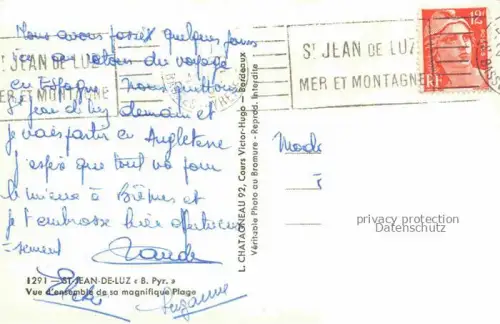 Nous avons passé quelques jours
ici au retour du voyage
en Espagne Nous quittons
St Jean de Luz demain et
je vais partir en Angleterre
J'espère que tout va pour
le mieux à
et
je t'embrasse bien affectueu
sement
Suzanne
1291 — ST-JEAN-DE-LUZ « B. Pyr. »
Vue d'ensemble de sa magnifique Plage
L. CHATAGNEAU 92, Cours Victor-Hugo — Bordeaux
Véritable Photo au Bromure - Reprod. Interdite
ST JEAN DE LUZ
MER ET MONTAGNE
ST JEAN DE LUZ
MER ET MONTAGNE
privacy protection
Datenschutz